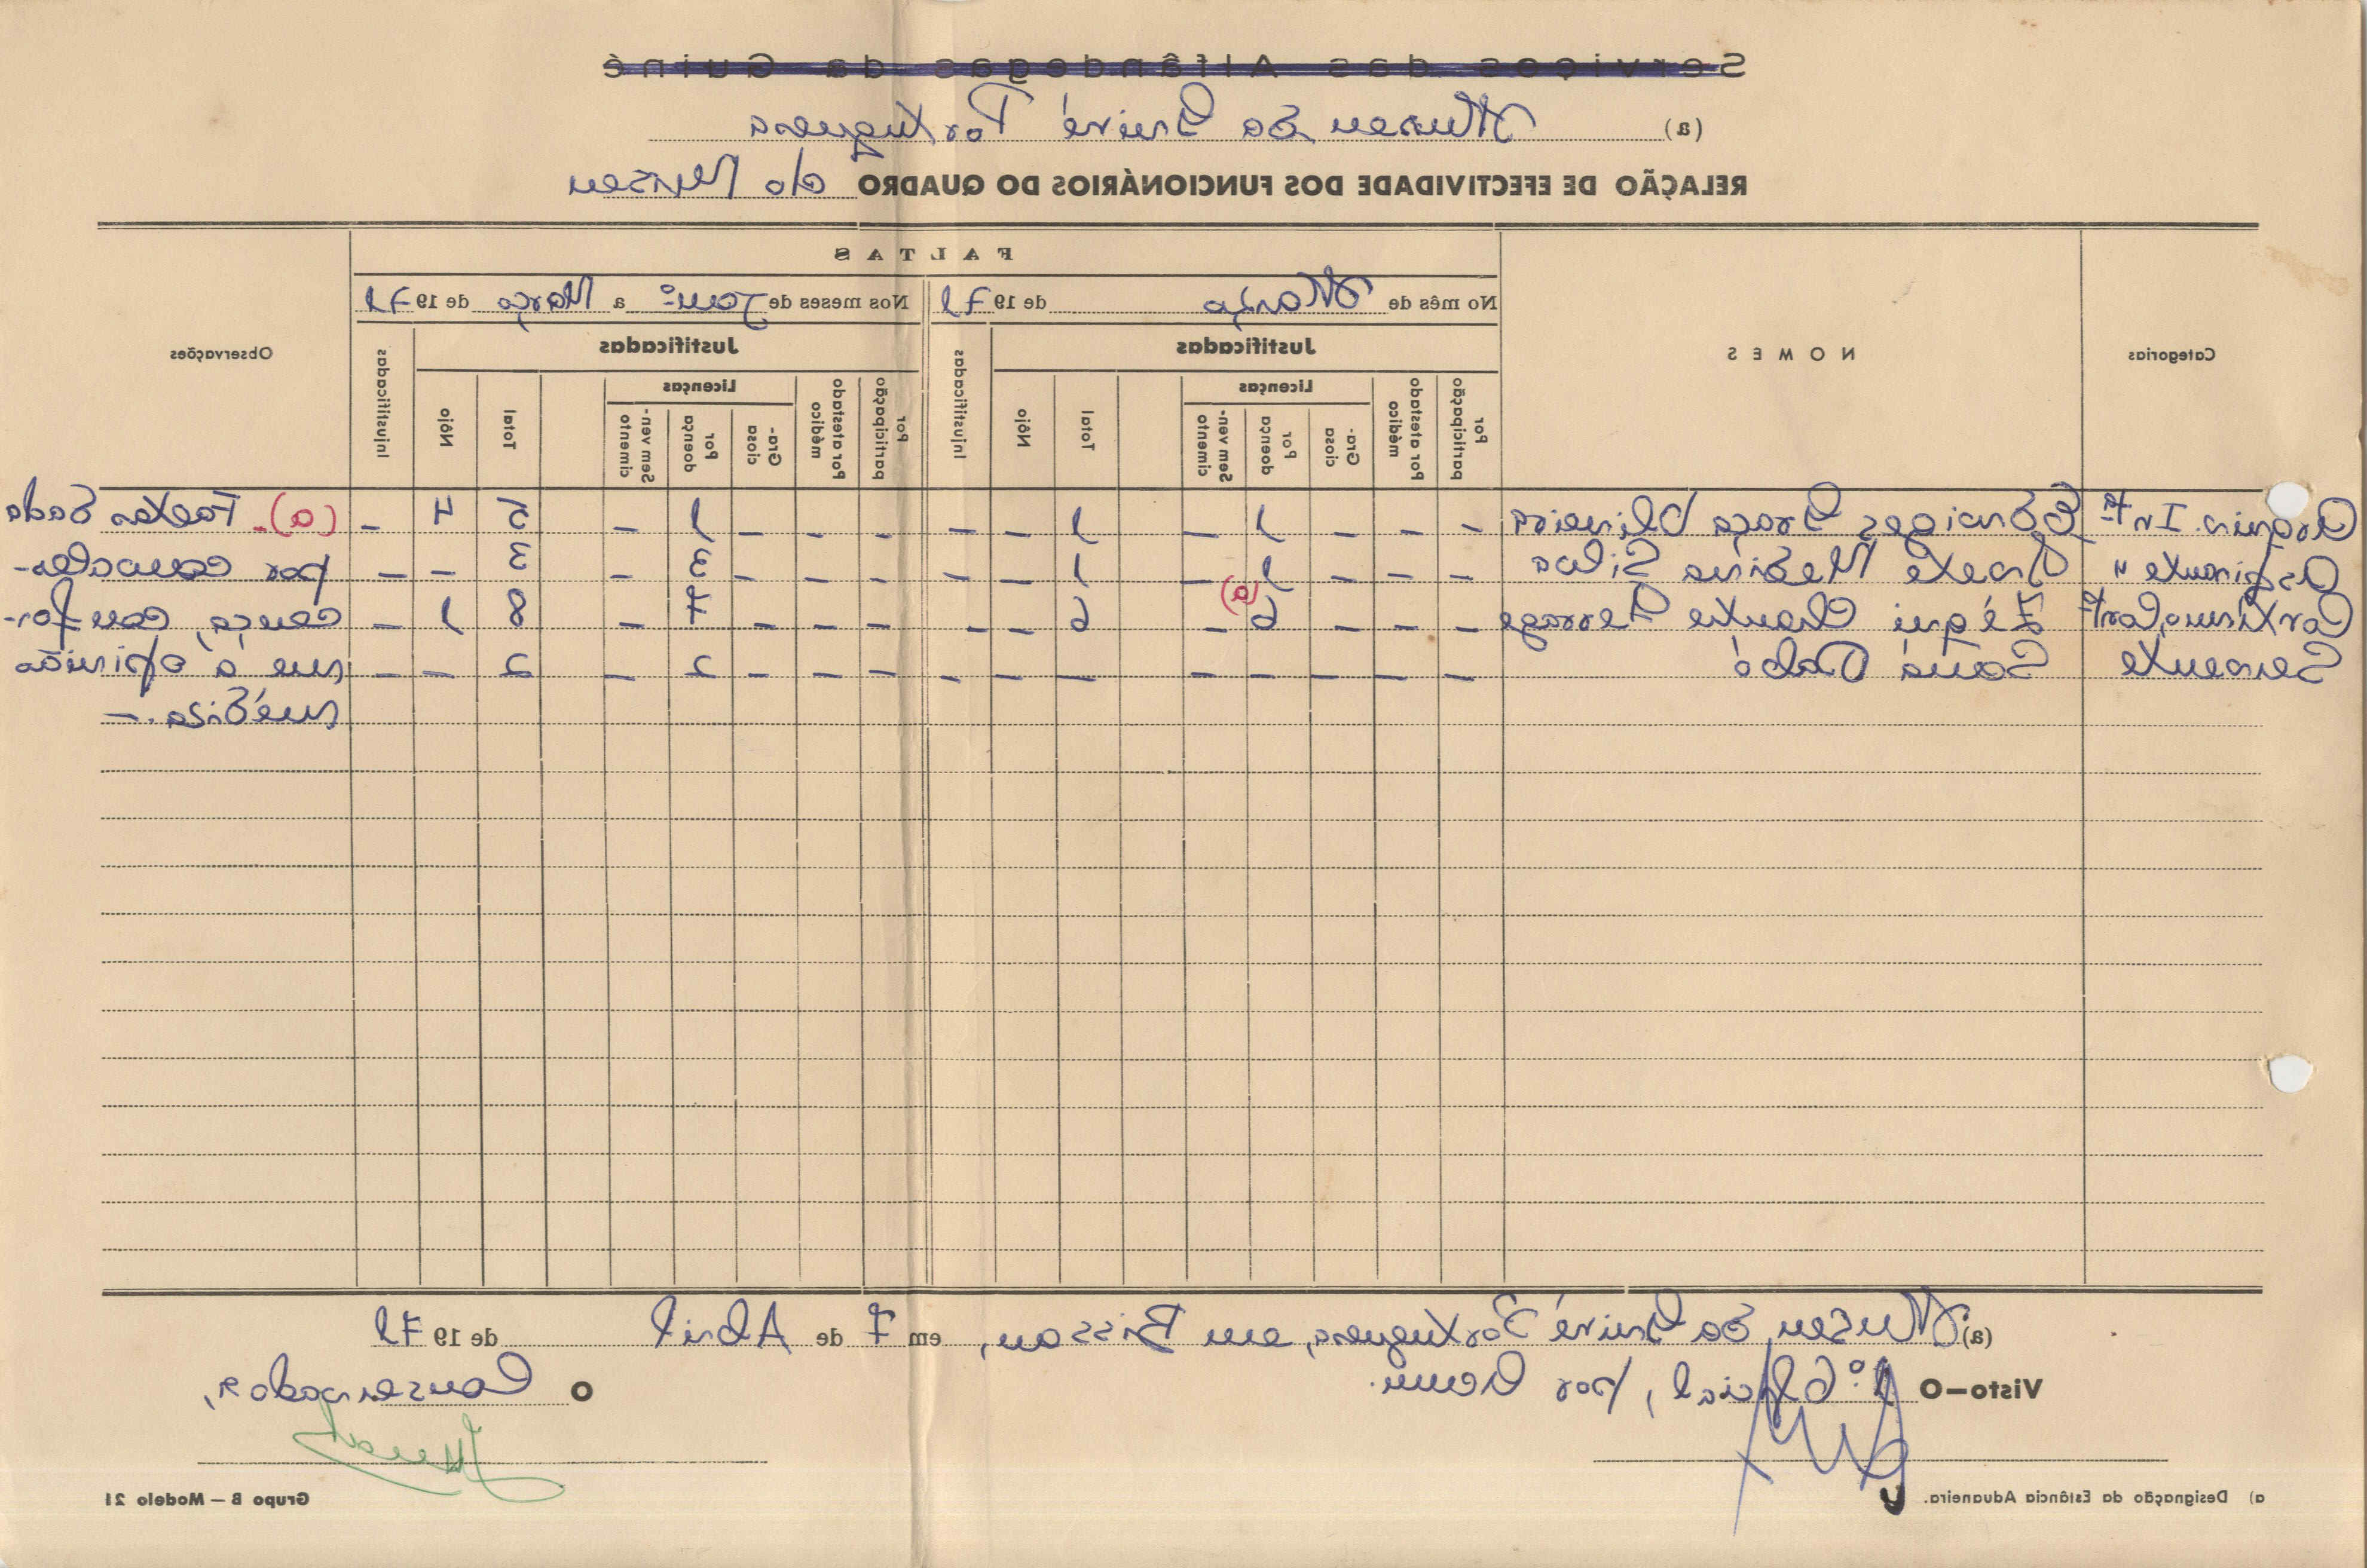 Serviços das Alfândegas da Guiné
(a) Museu da Guiné Portuguesa
RELAÇÃO DE EFECTIVIDADE DOS FUNCIONÁRIOS DO QUADRO do Museu
Categorias
NOMES
FALTAS
Observações
No mês de Março de 1971
Nos meses de Jan.º a Março de 1971
Justificadas
Injustificadas
Justificadas
Injustificadas
Por participação
Por atestado médico
Licenças
Graciosa
Por doença
Sem vencimento
Total
Nôjo
Por participação
Por atestado médico
Licenças
Graciosa
Por doença
Sem vencimento
Total
Nôjo
Eduiges Graça Oliveira - - - 1 - 1 - - - - - 1 - 5 4 - (a)- Faltas dada
" Medina Silva - - - 1 - 1 - - - - - 3 - 3 - - por
Duarte - - - 6 (a) - 6 - - - - - 7 - 8 1 - cença, con for-
Servente - - - - - - - - - - - 2 - 2 - - me a opinião
médica.-
(a) Museu da Guiné Portuguesa, em Bissau, em 7 de Abril de 1971
Visto-O 1.º Oficial, por O Conservador,
a) Designação da Estância Aduaneira.
Grupo B — Modelo 21